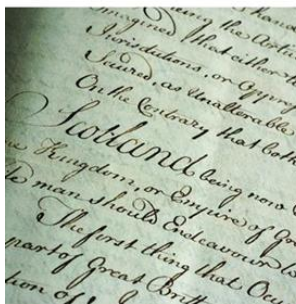 being the
imagined that either
Jurisdictions, or
Secured, as Unallerable
On the Contrary that both
Scotland being now
Kingdom, or Empire of
man should Endeavour
The first thing that
part of Great